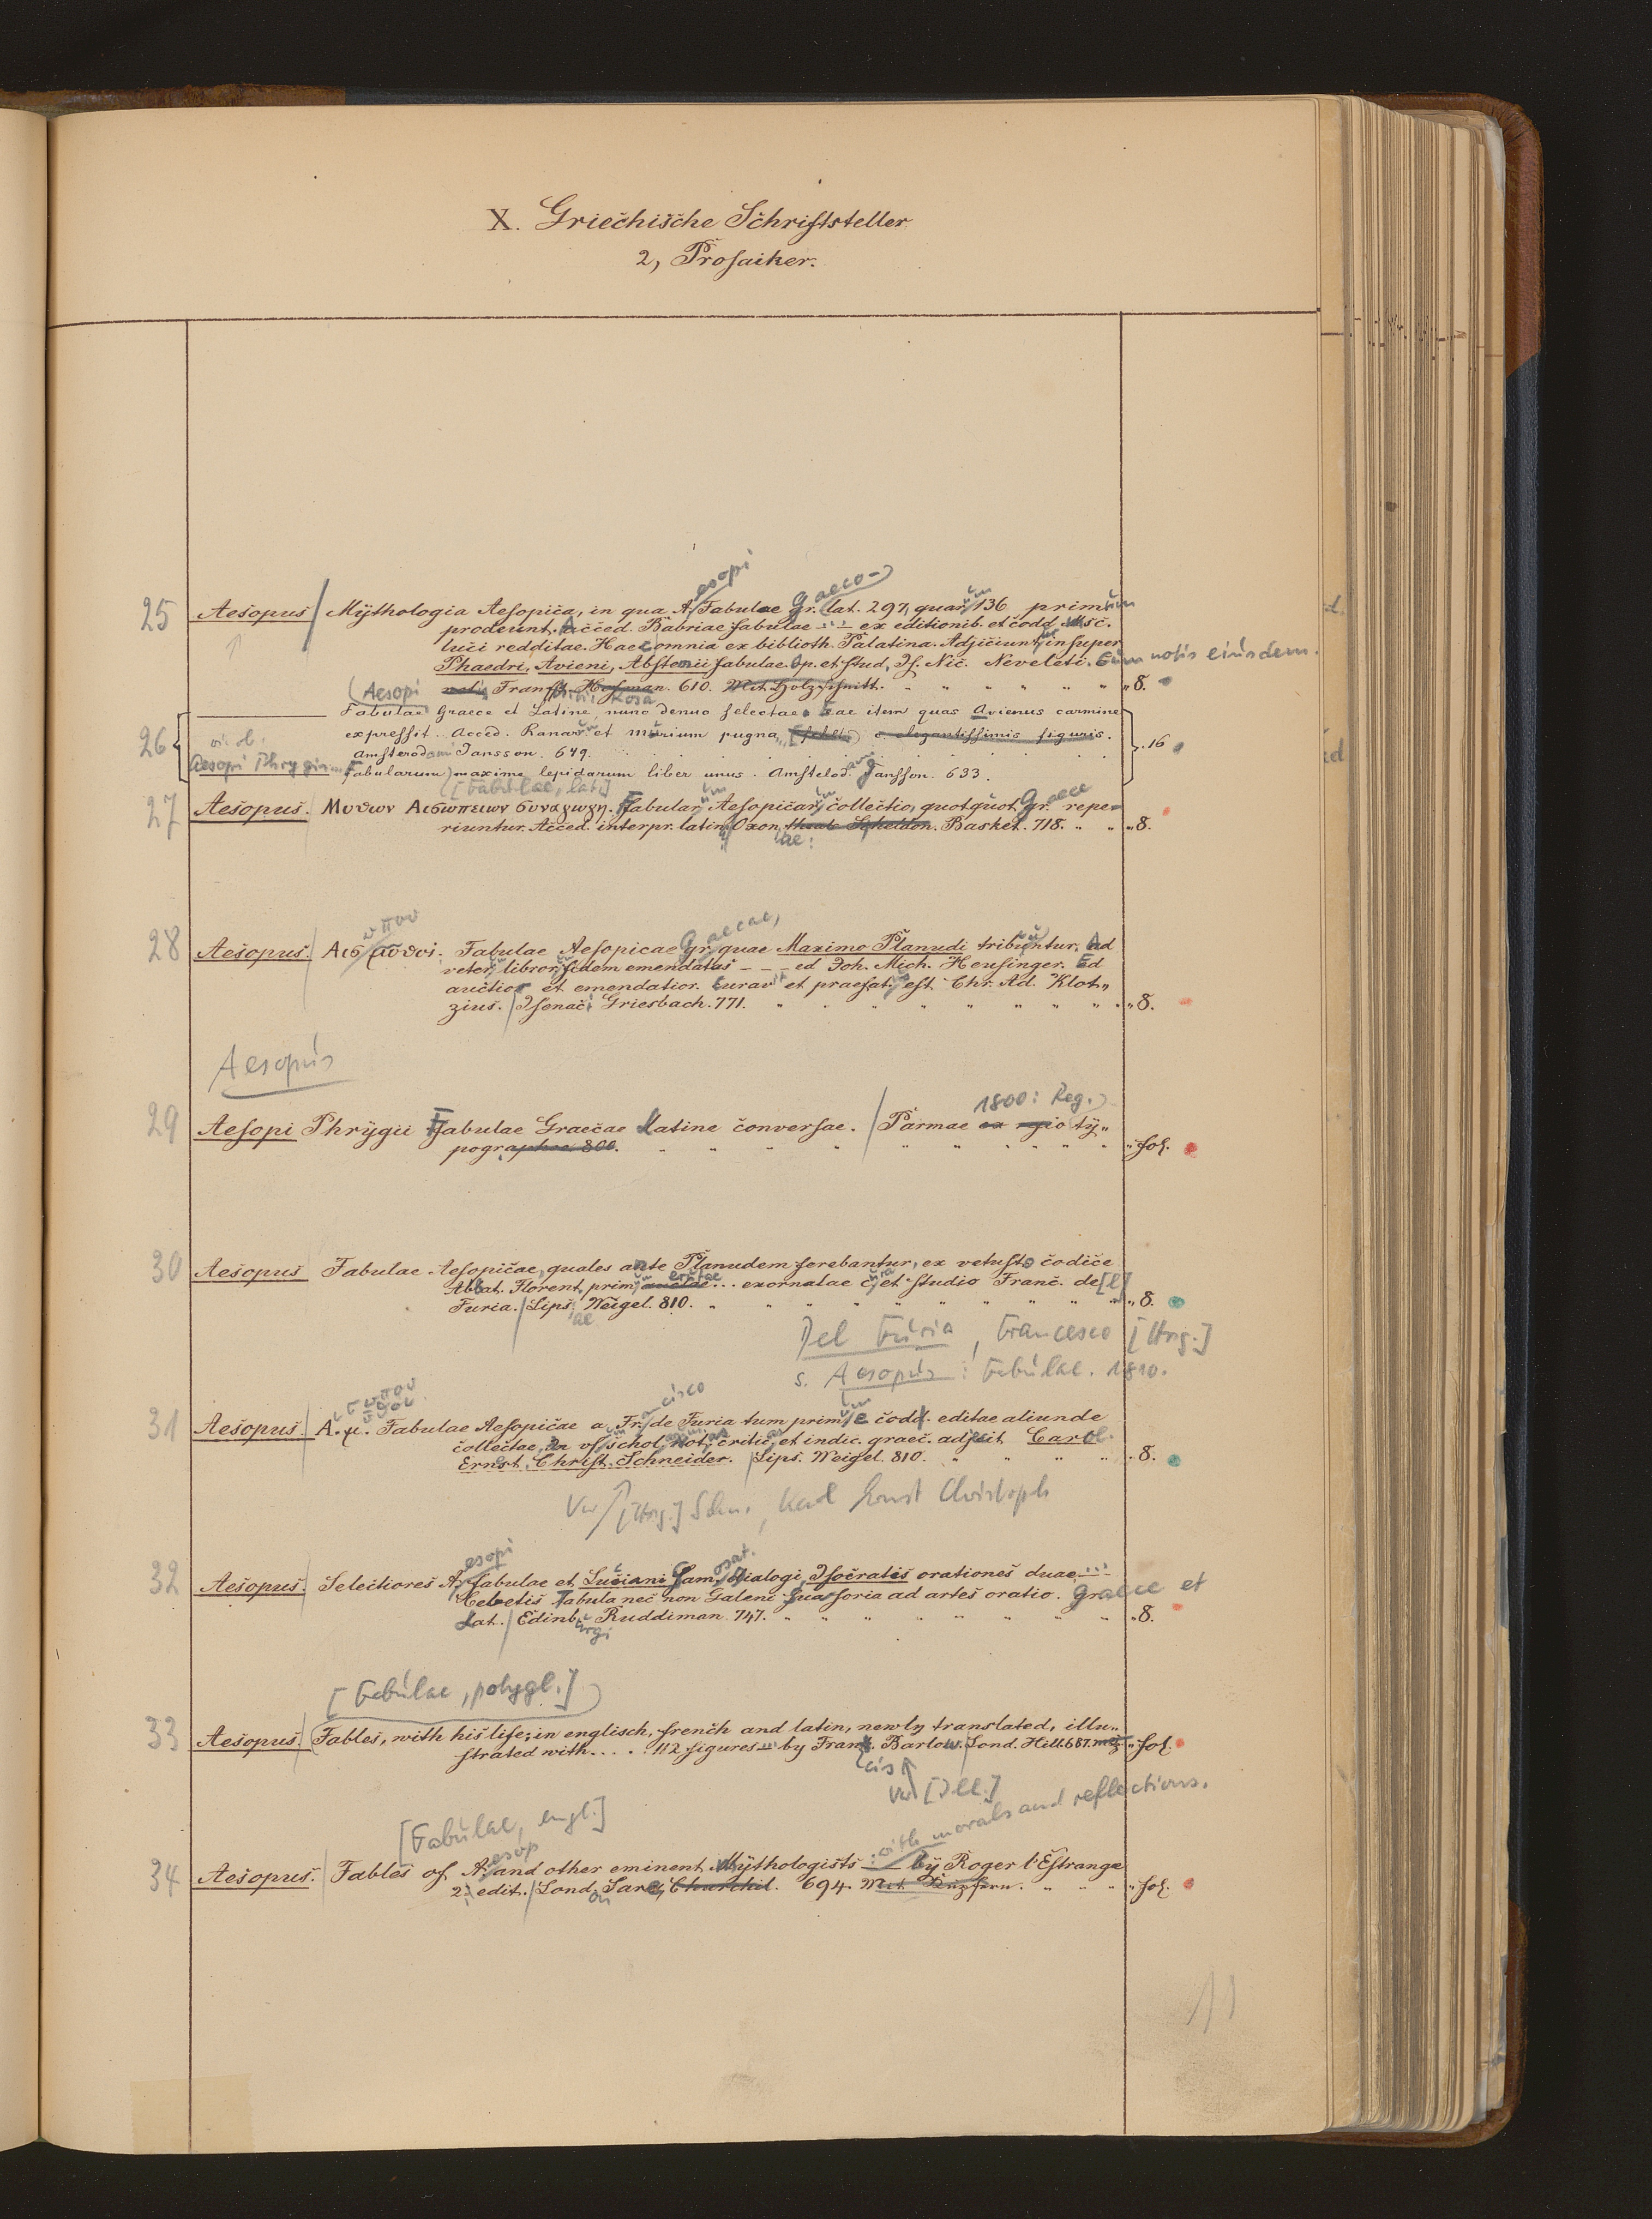 X. Griechische Schriftsteller
2, Prosaiker.
esopi
raeco-
25 Aesopus Mythologia Aesopica, in qua A. Fabulae gr. lat. 297, quar. 136 primum
prodeunt. Acced. Babriae fabulae ... ex editionib. et codd. Msc.
luci redditae. Haec omnia ex biblioth. Palatina. Adjiciunt insuper
Phaedri, Avieni, Abstemii fabulae. Op. et stud. Is. Nic. Neveleti. Cum notis eiusdem.
notis Francf. Hofman. 610. Mit Holzschnitt. 8.
(Aesopi
Rosa
Fabulae Graece et Latine, nunc denuo selectae. Eae item quas Avienus carmine
26 expressit. Acced. Ranar et murium pugna, c. elegantissimis figuris.
Amsterod Jansson. 649. 16
Aesopi Phrygis Fabularum maxime lepidarum liber unus. Amstelod. Jansson. 633.
[Fabulae, lat.]
27 Aesopus. Μυθων Αισωπειων συναγωγη. Fabular Aesopicar collectio, quotquot graece repe=
riuntur. Acced. interpr. latin. Oxon. theatr. Scheldon. Basket. 718. 8.
ae:
ωπου
raecae,
28 Aesopus. Αισ μυθοι. Fabulae Aesopicae gr. quae Maximo Planudi tribuntur, ad
veter. libror. fidem emendatas - - - ed Joh. Mich. Heusinger. Ed
auctior et emendatior. Curav et praefat. est Chr. Ad. Klot„
zius. Isenaci Griesbach. 771. 8.
Aesopus
1800: Reg.
29 Aesopi Phrygii Fabulae Graecae Latine conversae. Parmae ex regio ty„
pographeo 800. fol.
30 Aesopus Fabulae Aesopicae, quales ante Planudem ferebantur, ex vetusto codice
Abbat. Florent. prim. erutae ... exornatae c. et studio Franc. de[l]
Furia. Lips. Weigel. 810. 8.
ae
Del Furia, Francesco [Hrsg.]
s. Aesopus: Fabulae. 1810.
ισωπου
υθοι
cisco
31 Aesopus. Α. μ. Fabulae Aesopicae a Fr. de Furia tum prim. e codd. editae aliunde
collectae, in us. schol. not. critic. et indic. graec. adjecit Carol.
Ernst. Christ. Schneider. Lips. Weigel. 810. 8.
Vw [Hrsg.] Schn., Karl Ernst Christoph
esopi
osat.
32 Aesopus. Selectiores A. fabulae et Luciani Sam. Dialogi, Isocratis orationes duae ...
Cebetis Tabula nec non Galeni suasoria ad artes oratio. Graece et
Lat. Edinb. Ruddiman. 747. 8.
urgi
[Fabulae, polygl.]
33 Aesopus. Fables, with his life; in englisch, french and latin, newly translated, illu„
strated with .... 112 figures ... by Frank. Barlow. Lond. Hill. 687. fol.
cis
Vw [Ill.]
[Fabulae, engl.]
: with morals and reflections.
esop
34 Aesopus. Fables of A. and other eminent Mythologists by Roger l'Estrange
2. edit. Lond. Sare, Churchil. 694. Mit Kupfern. fol.
on
11